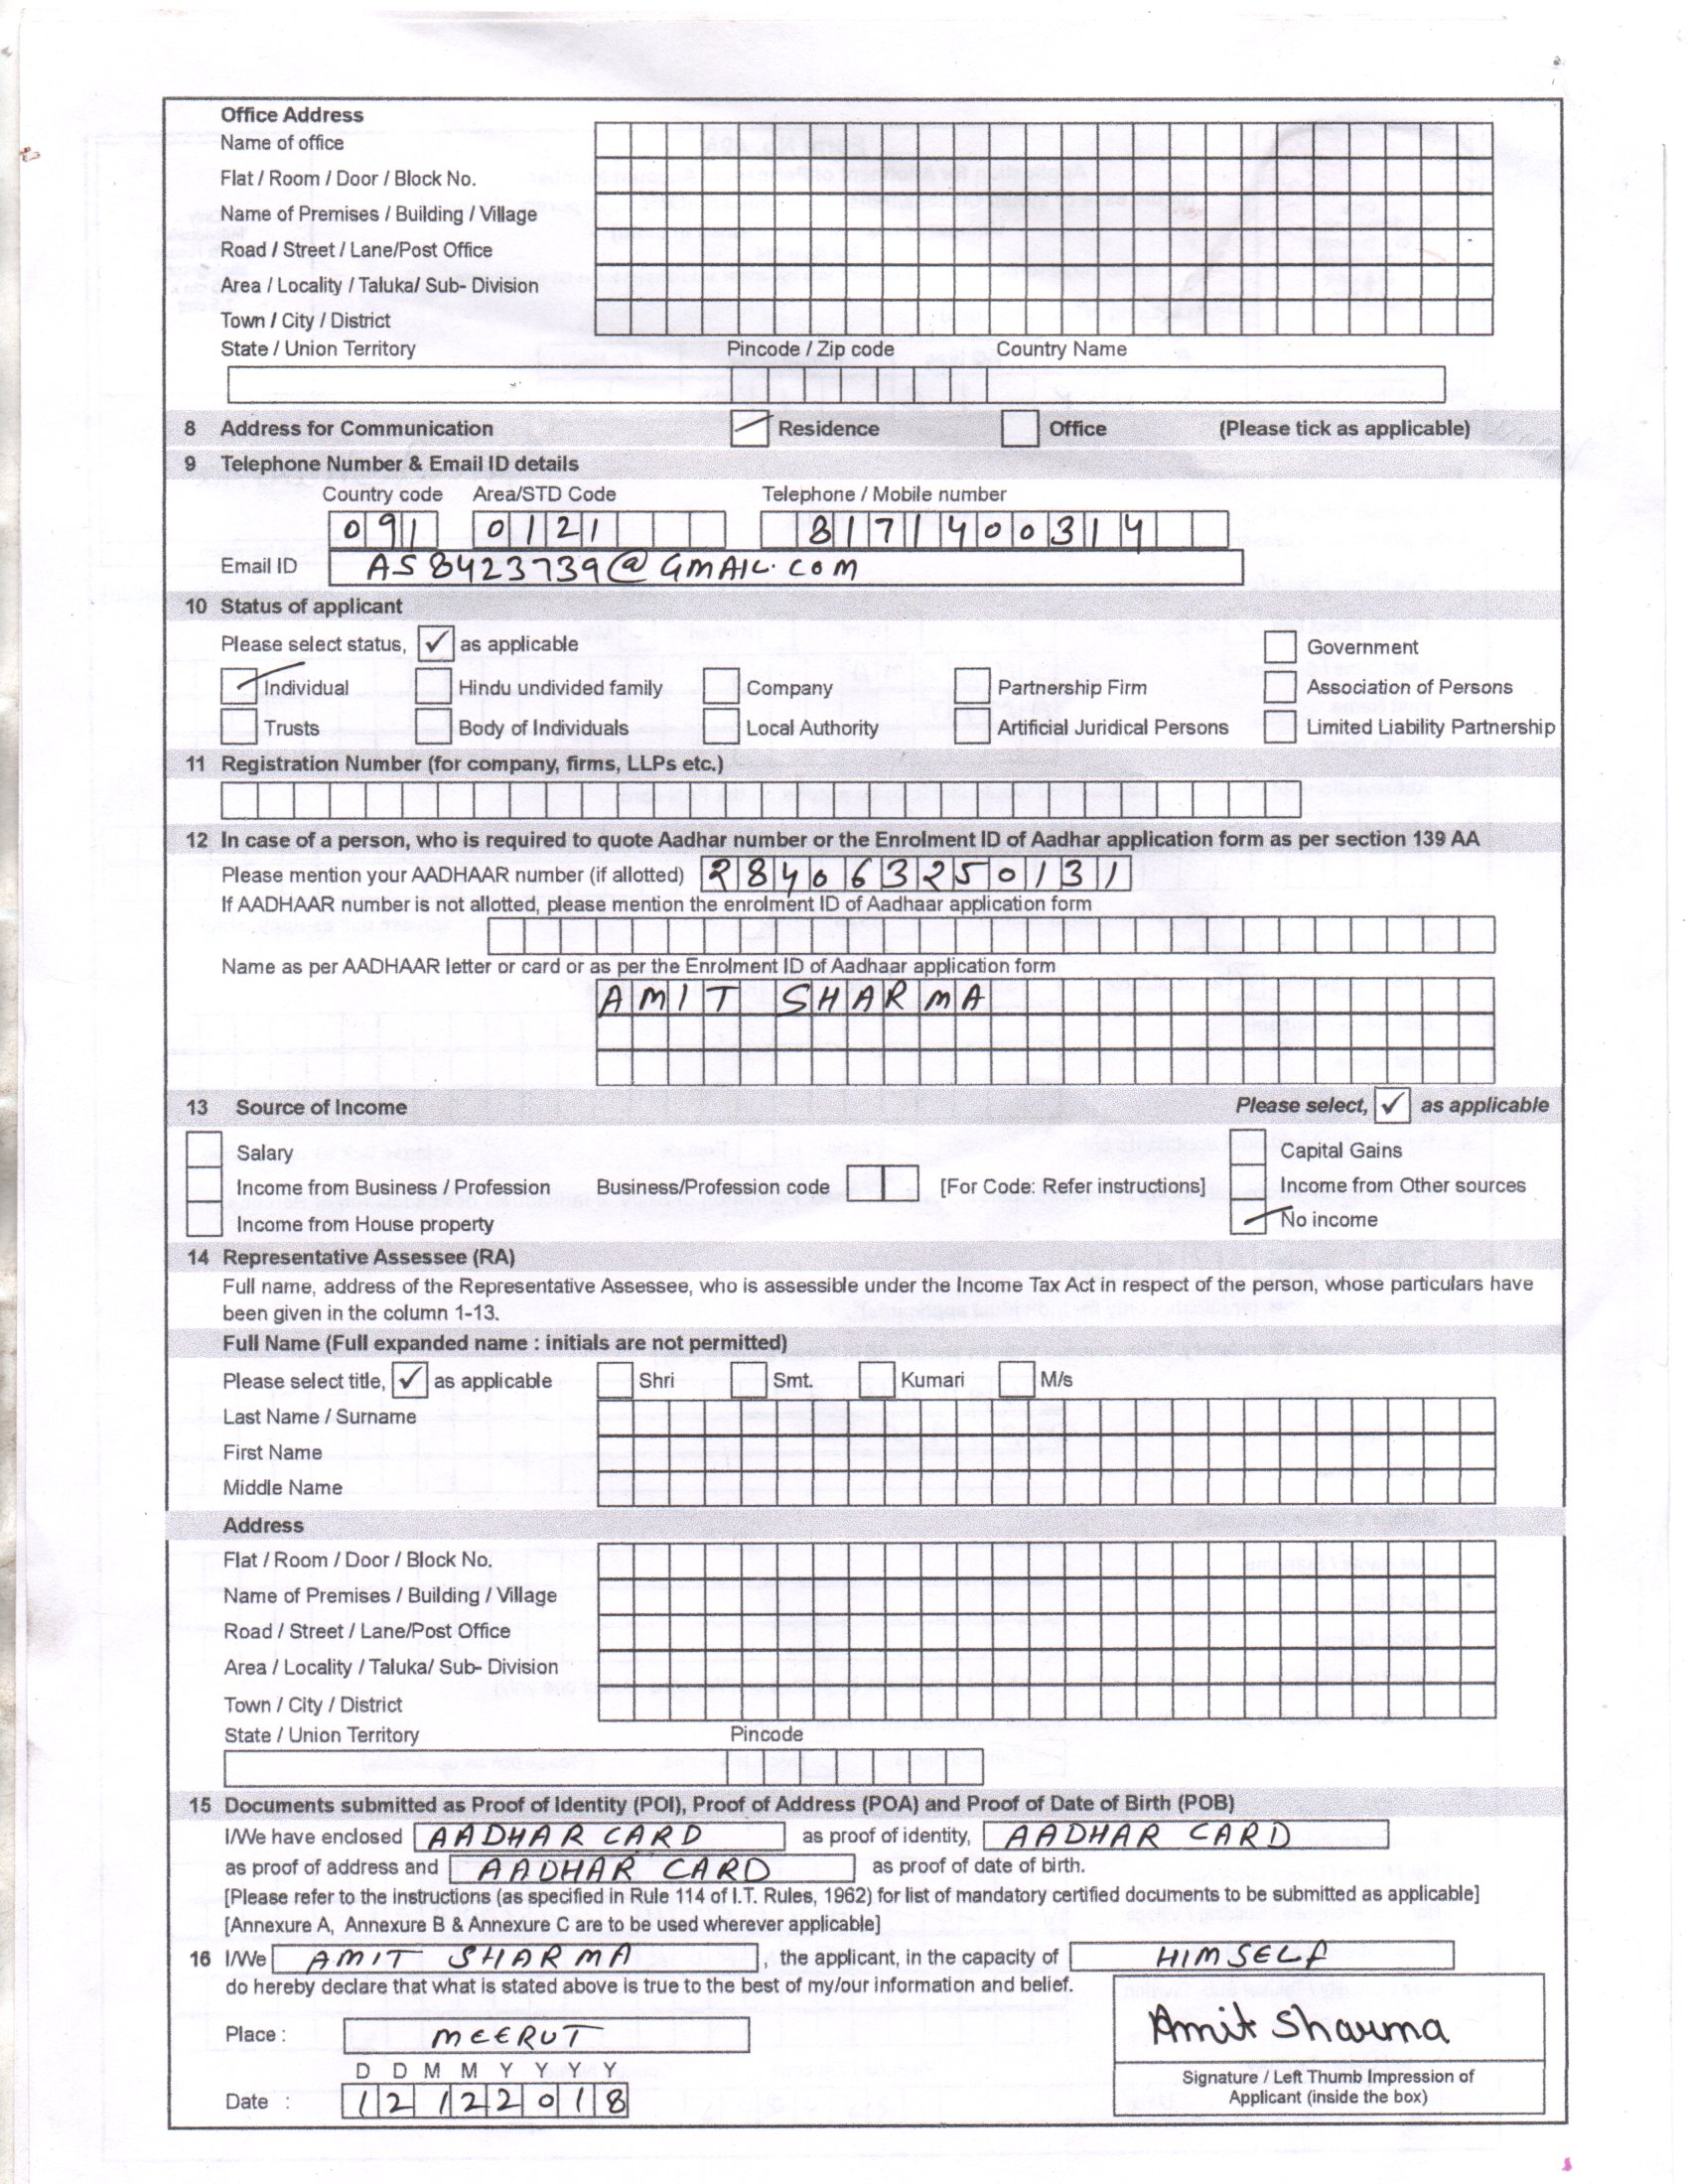 Office Address
Name of office
Flat / Room / Door / Block No.
Name of Premises / Building / Village
Road / Street / Lane/Post Office
Area / Locality / Taluka/ Sub- Division
Town / City / District
State / Union Territory Pincode / Zip code Country Name
8 Address for Communication Residence Office (Please tick as applicable)
9 Telephone Number & Email ID details
Country code Area/STD Code Telephone / Mobile number
091 0121 8171400314
Email ID AS8423739@GMAIL.COM
10 Status of applicant
Please select status, ✓ as applicable Government
Individual Hindu undivided family Company Partnership Firm Association of Persons
Trusts Body of Individuals Local Authority Artificial Juridical Persons Limited Liability Partnership
11 Registration Number (for company, firms, LLPs etc.)
12 In case of a person, who is required to quote Aadhar number or the Enrolment ID of Aadhar application form as per section 139 AA
Please mention your AADHAAR number (if allotted) 284063250131
If AADHAAR number is not allotted, please mention the enrolment ID of Aadhaar application form
Name as per AADHAAR letter or card or as per the Enrolment ID of Aadhaar application form
AMIT SHARMA
13 Source of Income Please select, ✓ as applicable
Salary Capital Gains
Income from Business / Profession Business/Profession code [For Code: Refer instructions] Income from Other sources
Income from House property No income
14 Representative Assessee (RA)
Full name, address of the Representative Assessee, who is assessible under the Income Tax Act in respect of the person, whose particulars have
been given in the column 1-13.
Full Name (Full expanded name : initials are not permitted)
Please select title, ✓ as applicable Shri Smt. Kumari M/s
Last Name / Surname
First Name
Middle Name
Address
Flat / Room / Door / Block No.
Name of Premises / Building / Village
Road / Street / Lane/Post Office
Area / Locality / Taluka/ Sub- Division
Town / City / District
State / Union Territory Pincode
15 Documents submitted as Proof of Identity (POI), Proof of Address (POA) and Proof of Date of Birth (POB)
I/We have enclosed AADHAR CARD as proof of identity, AADHAR CARD
as proof of address and AADHAR CARD as proof of date of birth.
[Please refer to the instructions (as specified in Rule 114 of I.T. Rules, 1962) for list of mandatory certified documents to be submitted as applicable]
[Annexure A, Annexure B & Annexure C are to be used wherever applicable]
16 I/We AMIT SHARMA , the applicant, in the capacity of HIMSELF
do hereby declare that what is stated above is true to the best of my/our information and belief.
Amit Sharma
Place : MEERUT
Signature / Left Thumb Impression of
Applicant (inside the box)
D D M M Y Y Y Y
Date : 12122018